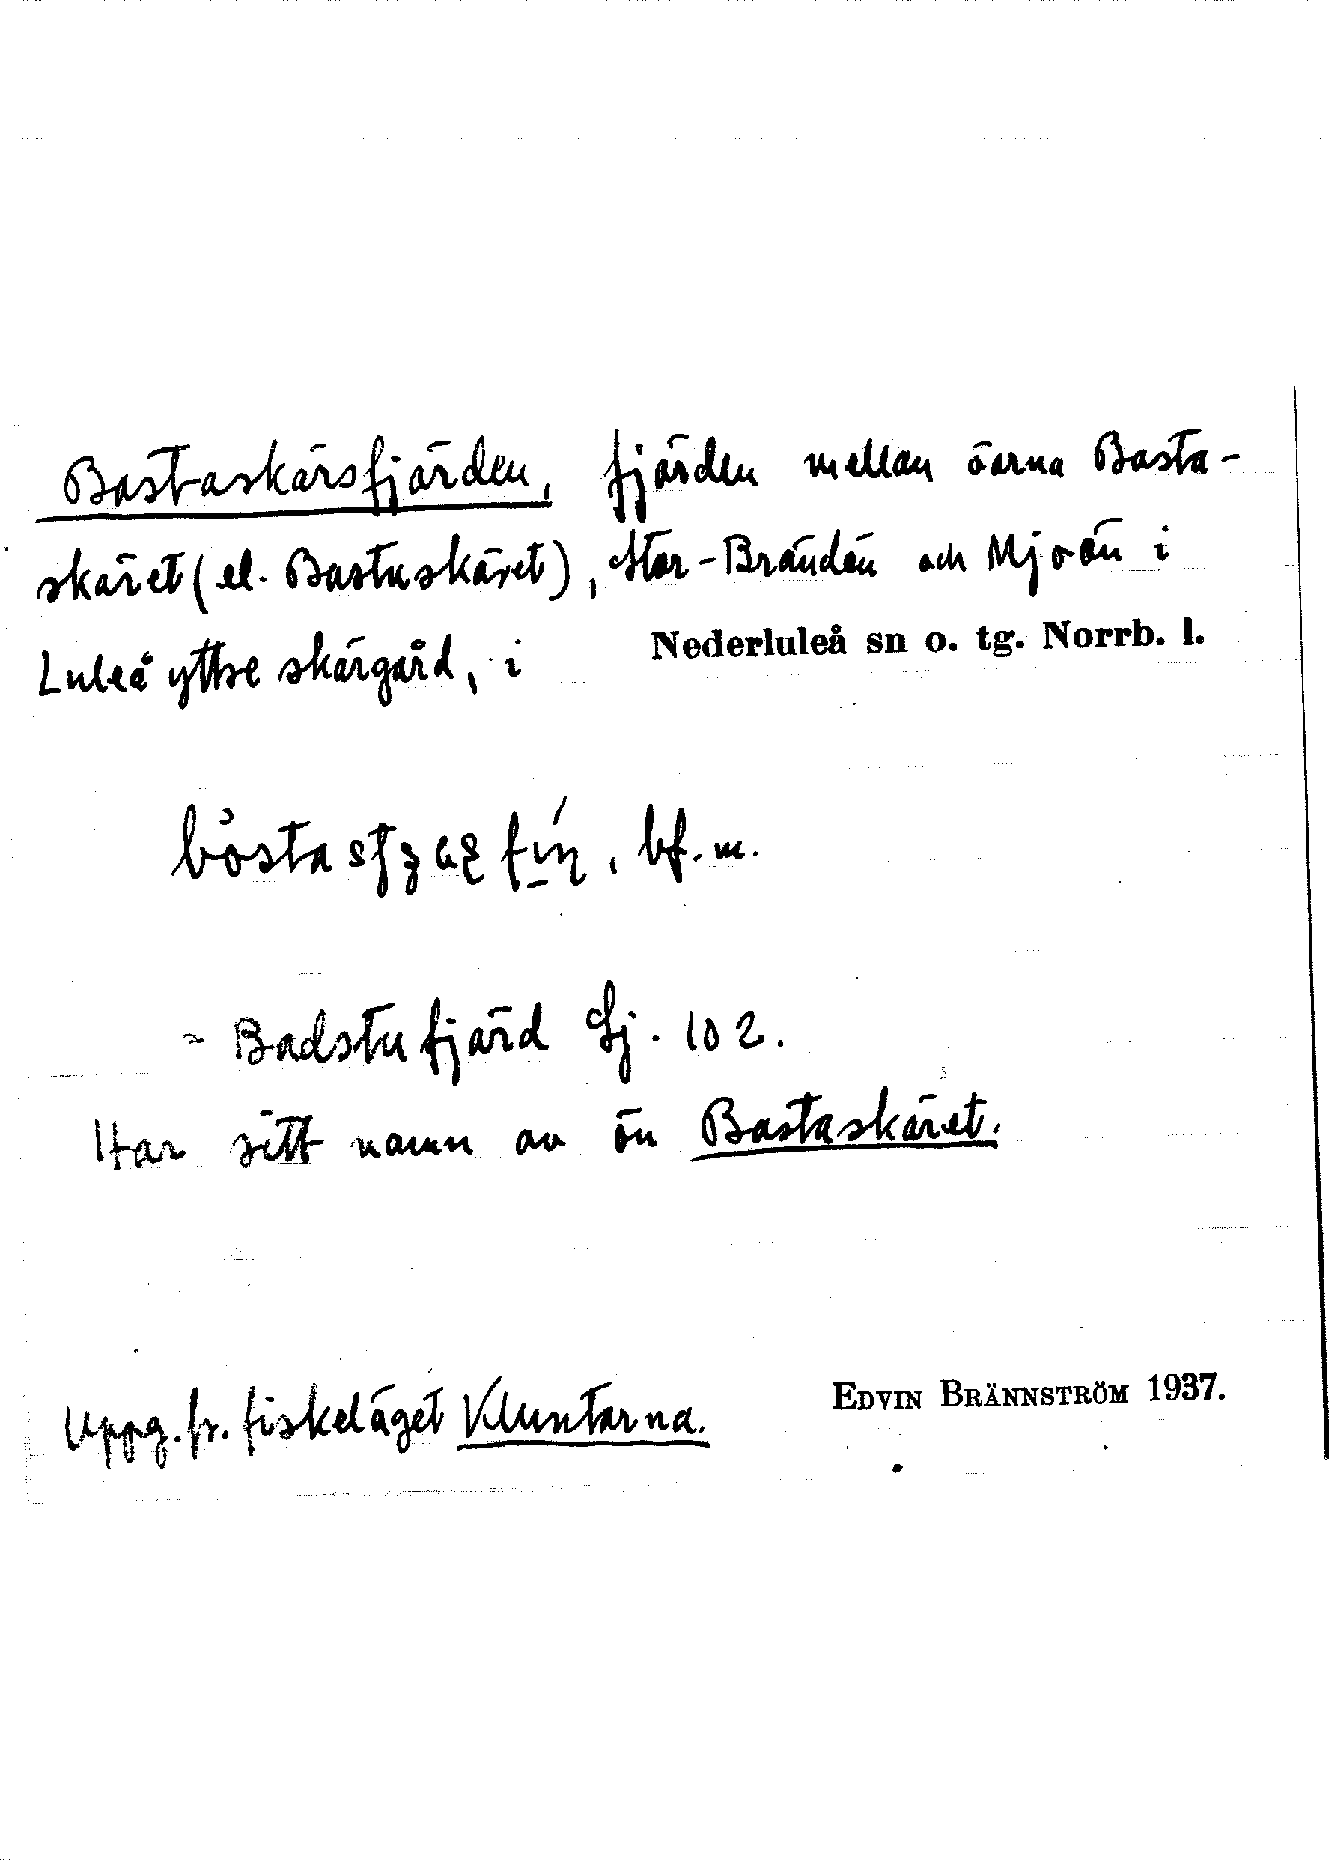 Bastaskärsfjärden, fjärden mellan öarna Basta-
skäret (el. Bastuskäret), Stor-Brändön och Mjoön i
Luleå yttre skärgård, i Nederluleå sn o. tg. Norrb. l.
bf. m.
= Badstufjärd Sj. 102.
Har sitt namn av ön Bastaskäret.
Uppg. fr. fiskeläget Kluntarna. EDVIN BRÄNNSTRÖM 1937.